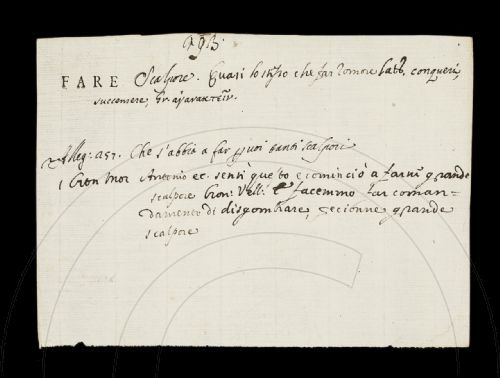 FARE Scalpore. Quasi lo stesso che far romore latt. conqueri,
succensere, gr. ἀγανακτεῖν.
Alleg: 257. Che s'abbia a far quoi tanti scalpori
Cron Mor Antonio ec. sentì questo e cominciò a farne grande
scalpore Cron: Vell: E facemmo far coman-
damento di disgombrare, fecionne grande
scalpore